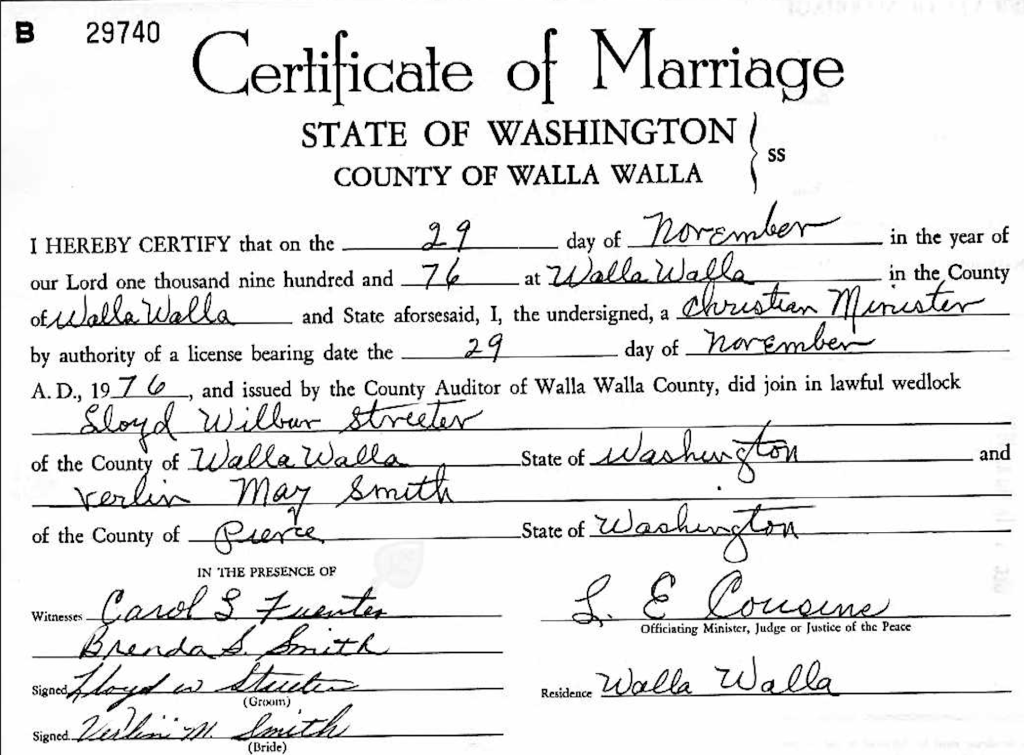 B 29740
Certificate of Marriage
STATE OF WASHINGTON
COUNTY OF WALLA WALLA } ss
I HEREBY CERTIFY that on the 29 day of November in the year of
our Lord one thousand nine hundred and 76 at Walla Walla in the County
of Walla Walla and State aforsesaid, I, the undersigned, a Christian Minister
by authority of a license bearing date the 29 day of November
A. D., 1976, and issued by the County Auditor of Walla Walla County, did join in lawful wedlock
Lloyd Wilbur Streeter
of the County of Walla Walla State of Washington and
Verlin May Smith
of the County of Pierce State of Washington
IN THE PRESENCE OF
Witnesses Carol L Fuentes
Brenda S. Smith
Signed Lloyd W Streeter
(Groom)
Signed Verlin M. Smith
(Bride)
L. E Cousins
Officiating Minister, Judge or Justice of the Peace
Residence Walla Walla